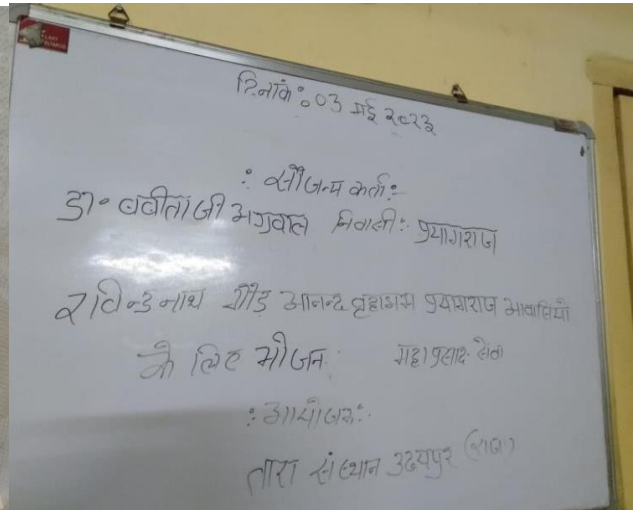 दिनांक: 03 मई २०२३
: सौजन्य कर्ता :
डा॰ बबीता जी अग्रवाल निवासी : प्रयागराज
रविन्द्र नाथ गौड़ आनन्द वृद्धाश्रम प्रयागराज आवासियों
के लिए भोजन : महाप्रसाद सेवा
: आयोजक :
तारा संस्थान उदयपुर (राज॰)